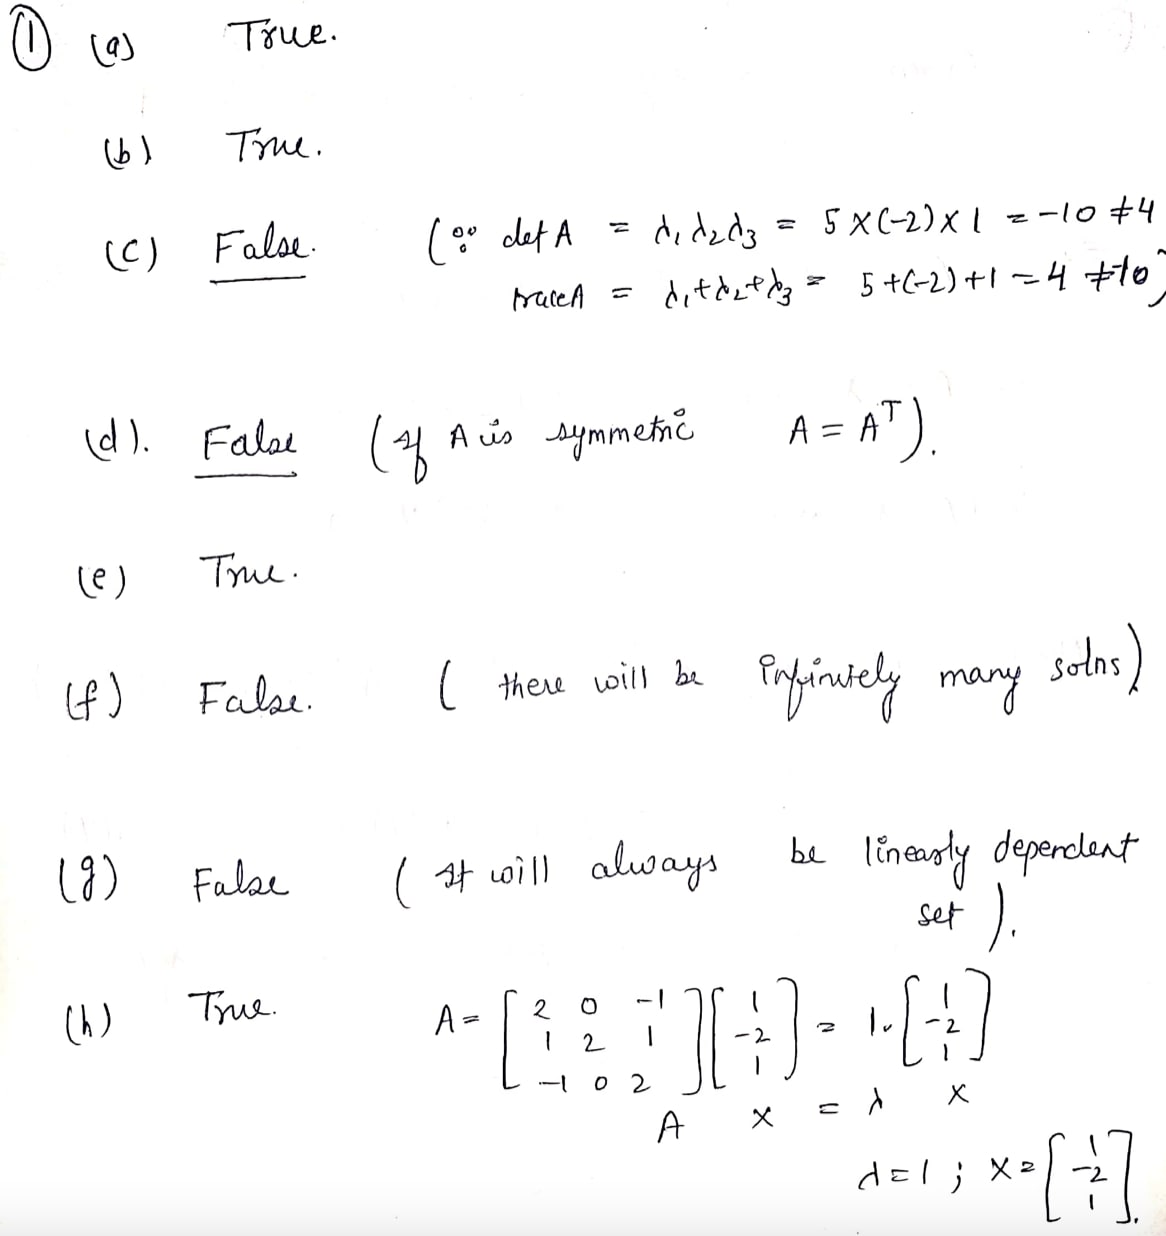 ① (a) True.
(b) True.
(c) False. (∵ det A = λ₁λ₂λ₃ = 5 × (-2) × 1 = -10 ≠ 4
trace A = λ₁+λ₂+λ₃ = 5+(-2)+1 = 4 ≠ 10)
(d). False (If A is symmetric A = Aᵀ).
(e) True.
(f) False. ( there will be infinitely many solns)
(g) False ( It will always be linearly dependent
set ).
(h) True. A = [2 0 -1; 1 2 1; -1 0 2] [1; -2; 1] = 1. [1; -2; 1]
A x = λ x
λ = 1 ; x = [1; -2; 1].